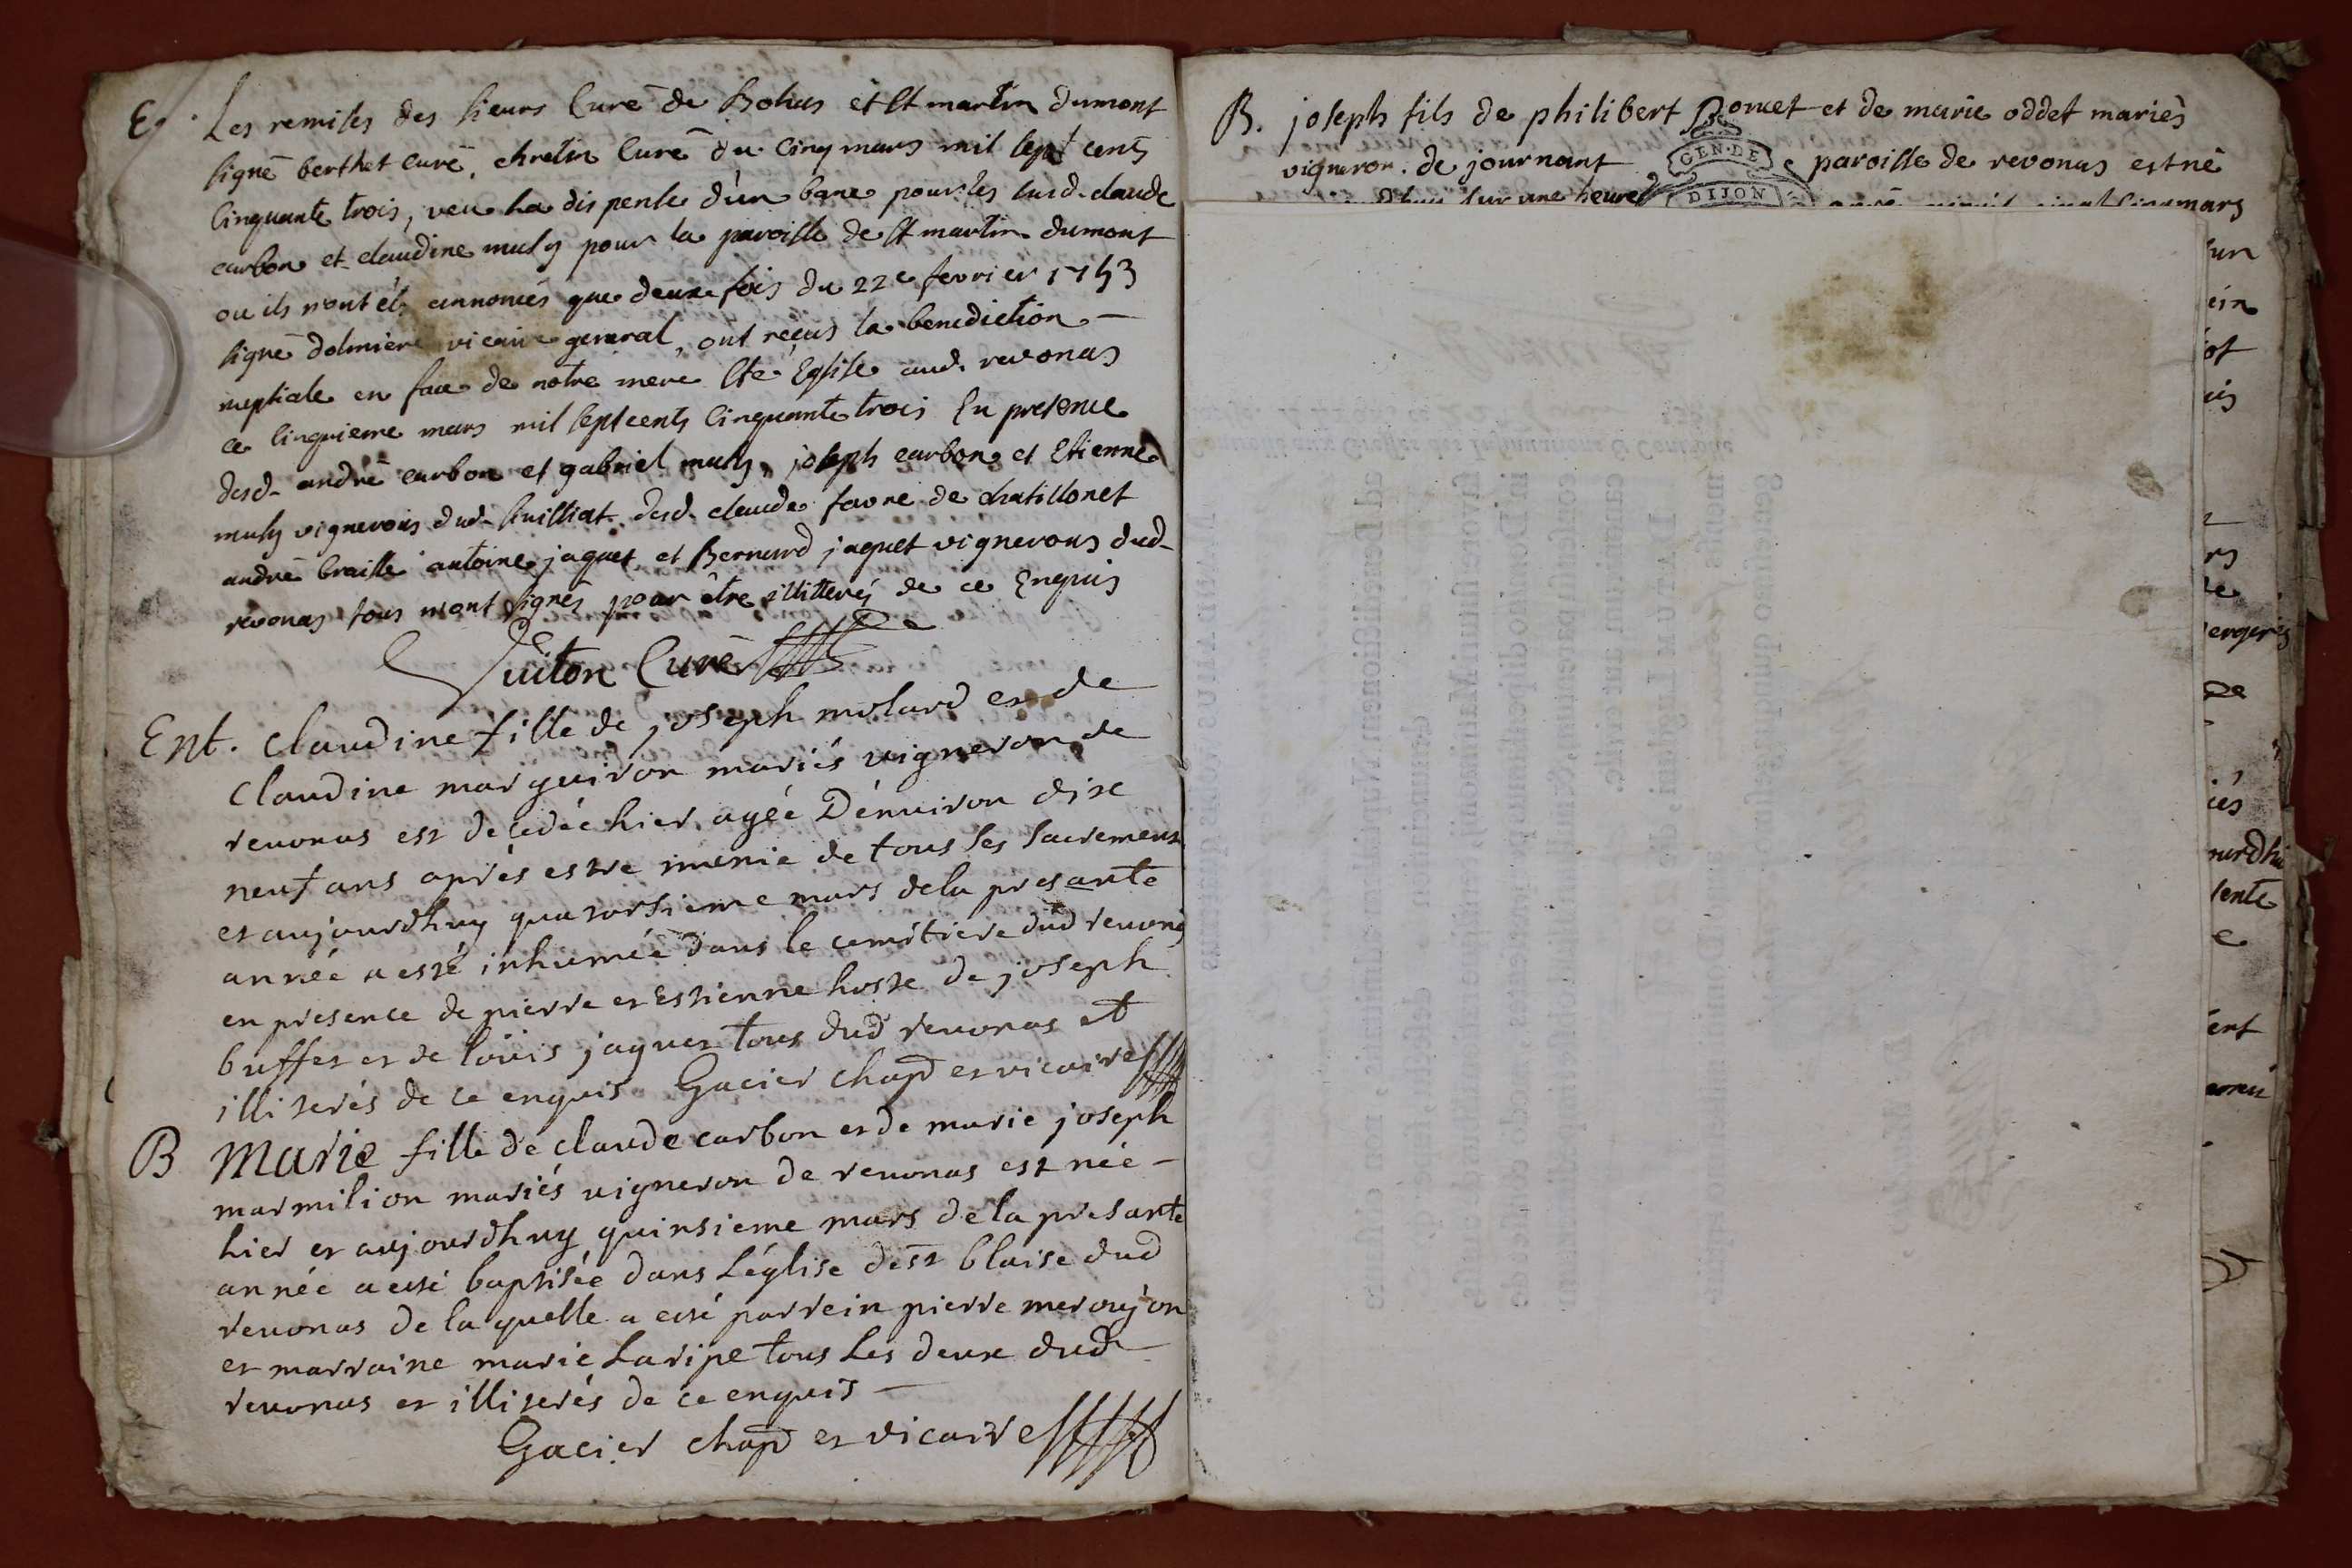 E. Les remises des sieurs Curé de Bohas et St martin dumont
signé berthet curé, chretin Curé du Cinq mars mil sept cents
Cinquante trois, veu la dispense d'un banc pour les susd. claude
carbon et claudine muly pour la paroisse de St martin dumont
ou ils n'ont été annoncés que deux fois du 22e fevrier 1753
signé dolmiere vicaire general, ont reçus la benediction
nuptiale en face de notre mere Ste Eglise aud. revonas
ce Cinquieme mars mil sept cents Cinquante trois En presence
desd. andré carbon et gabriel muly, joseph carbon et Etienne
muly vignerons dud. desd. claude favre de chatillonet
andré braille antoine jaquet et Bernard jaquet vignerons dud.
revonas tous n'ont signés pour être illitterés de ce Enquis
Guiton Curé
Ent. Claudine fille de joseph molard et de
Claudine marguiron mariés vigneron de
revonas est decedée hier agée D'enuiron dix
neuf ans aprés estre munie de tous les sacremens
et aujourdhuy quatorsieme mars dela presante
année a esté inhumée dans le cemétiere dud revonas
en presence de pierre et Estienne hoste de joseph
buffet et de loüis jaquet tous dud revonas et
illiterés de ce enquis Gacier chapd et vicaire
B Marie fille de claude carbon et de marie joseph
marmilion mariés vigneron de revonas est née
hier et aujourdhuy quinsieme mars de la presante
année a esté baptisée dans L'église de st blaise dud
revonas de la quelle a esté parrein pierre meroujon
et marraine marie Laripe tous Les deux dud
revonas et illiterés de ce enquis
Gacier chapd et vicaire
B. joseph fils de philibert Poncet et de marie oddet mariés
vigneron de journant paroisse de revonas est né
sur une heure mars
GEN. DE
DIJON